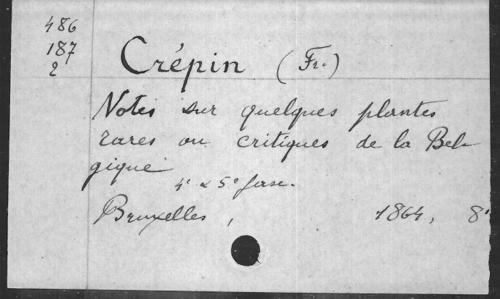 486
187
2
Crépin (Fr.)
Notes sur quelques plantes
rares ou critiques de la Bel-
gique
4e & 5e fasc.
Bruxelles, 1864, 8°